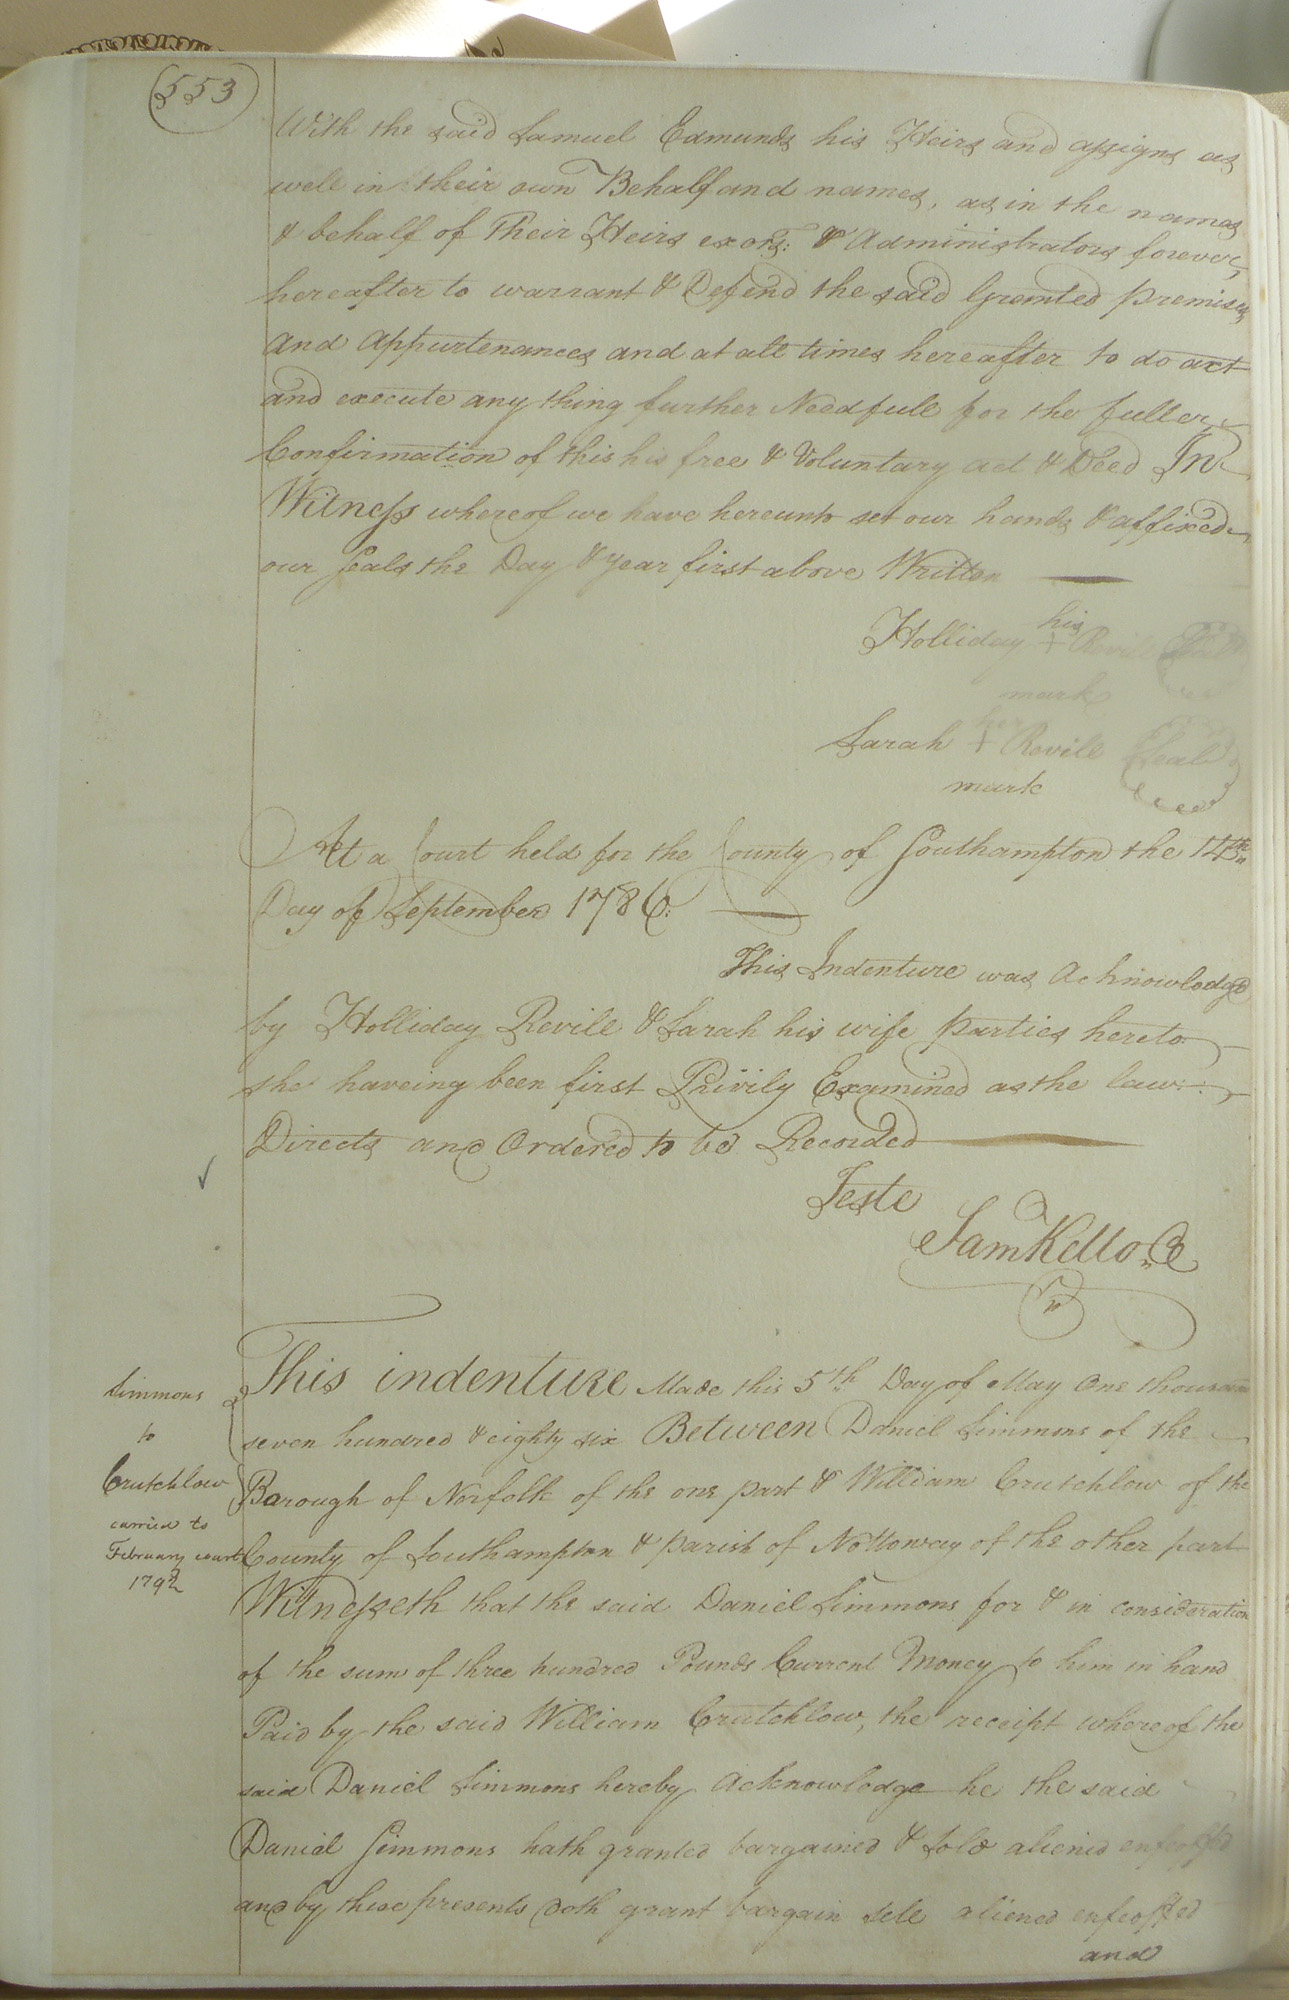 553
With the said Samuel Edmunds his Heirs and assigns as
well in their own Behalf and names, as in the names
& behalf of Their Heirs exors: & Administrators forever,
hereafter to warrant & Defend the said Granted premises
and appurtenances and at all times hereafter to do act
and execute any thing further Needfull for the fuller
Confirmation of this his free & Voluntary act & Deed In
Witness whereof we have hereunto set our hands & affixed
our Seals the Day & year first above Written
his
Holliday + Revill Seal
mark
her
Sarah + Revill Seal
mark
At a Court held for the County of Southampton the 14th
Day of September 1786.
This Indenture was Acknowledgd
by Holliday Revill & Sarah his wife parties hereto
she haveing been first Privily Examined as the law
Directs and Ordered to be Recorded
Teste
Sam Kello C
Simmons
to
Crutchlow
carried to
February court
1792
This indenture Made this 5th Day of May One thousand
seven hundred & eighty six Between Daniel Simmons of the
Borough of Norfolk of the one part & William Crutchlow of the
County of Southampton & parish of Nottoway of the other part
Witnesseth that the said Daniel Simmons for & in consideration
of the sum of three hundred Pounds Current Money to him in hand
Paid by the said William Crutchlow, the receipt whereof the
said Daniel Simmons hereby Acknowledge he the said
Daniel Simmons hath granted bargained & Sold aliened enfeoffed
and by these presents doth grant bargain sell aliened enfeoffed
and